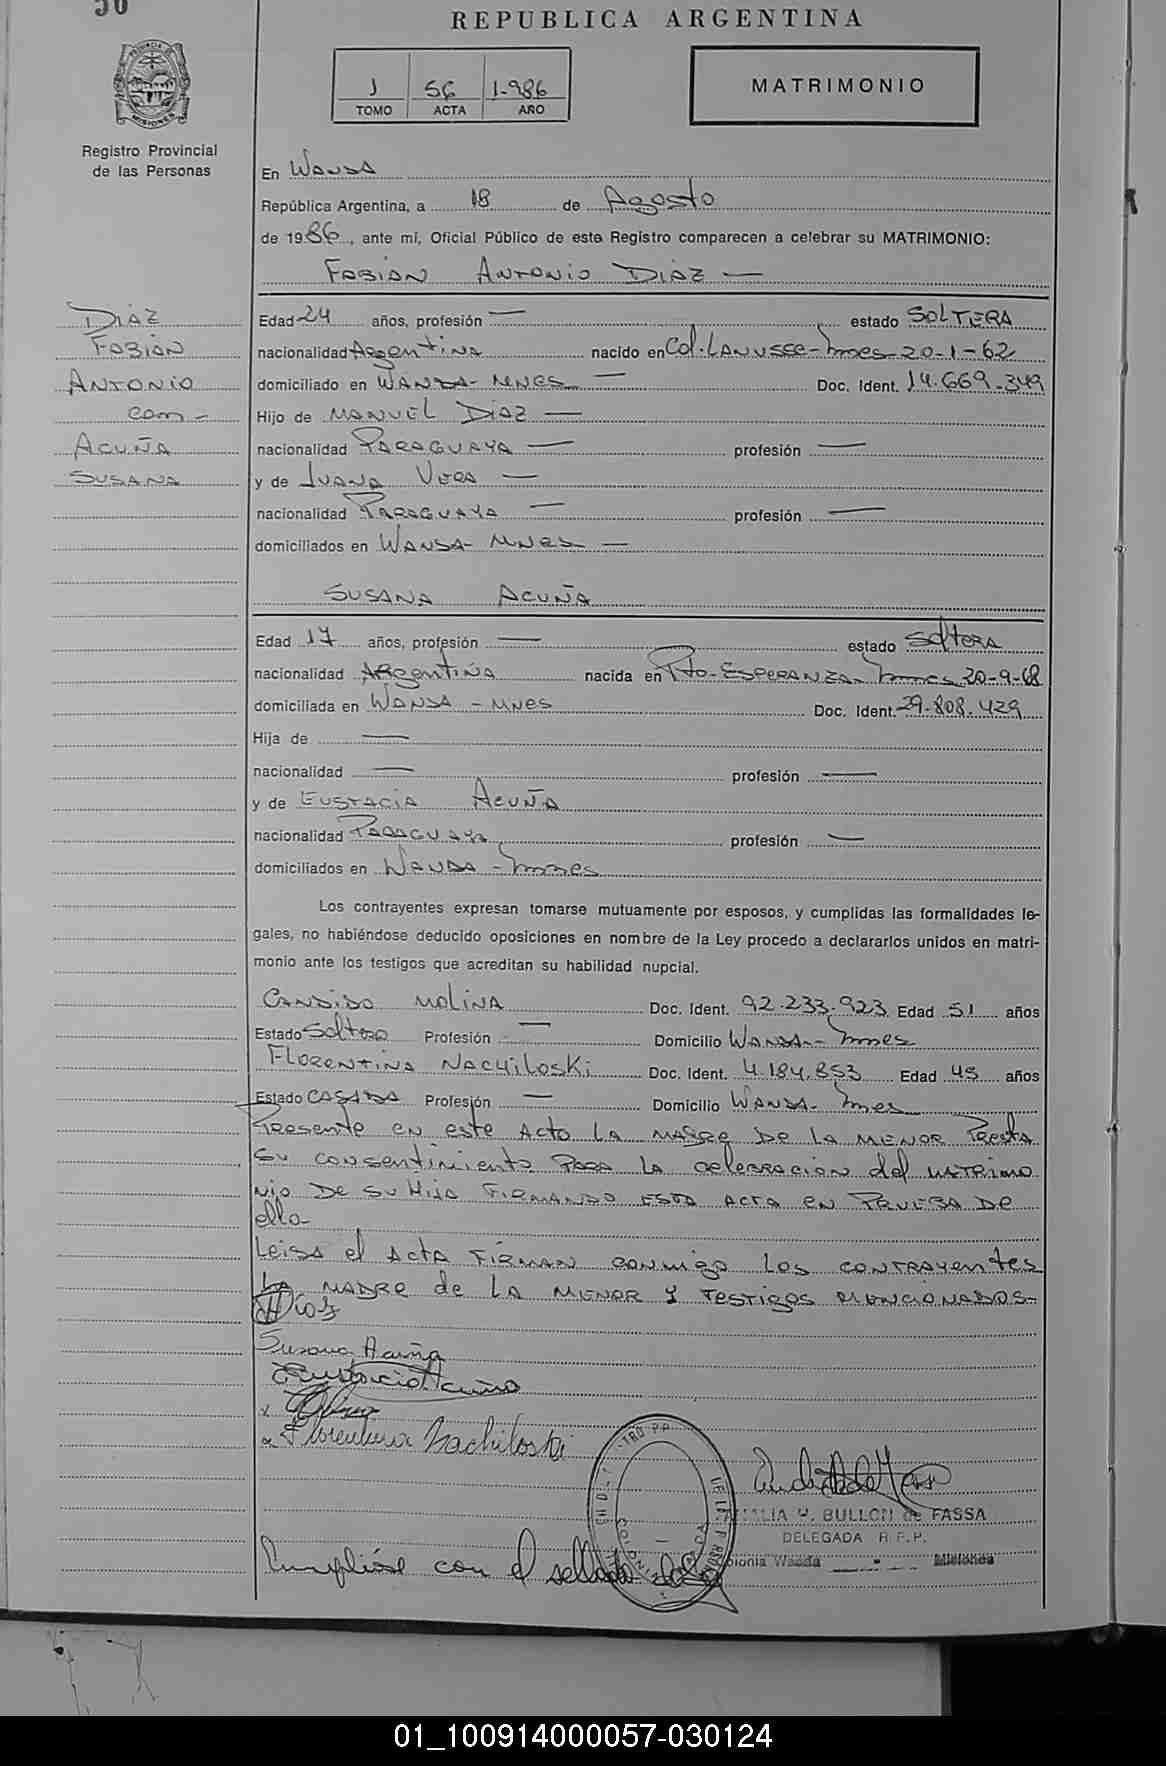 56
REPUBLICA ARGENTINA
1 56 1.986
TOMO ACTA AÑO
MATRIMONIO
Registro Provincial
de las Personas
En WANDA
República Argentina, a 18 de Agosto
de 1986, ante mí, Oficial Público de este Registro comparecen a celebrar su MATRIMONIO:
FABIAN ANTONIO DIAZ —
DIAZ
FABIAN
ANTONIO
con -
ACUÑA
SUSANA
Edad 24 años, profesión — estado SOLTERA
nacionalidad Argentina nacido en Col. LANUSSE - Mnes - 20-1-62
domiciliado en WANDA - MNES — Doc. Ident. 14.669.349
Hijo de MANUEL DIAZ —
nacionalidad PARAGUAYA — profesión —
y de JUANA VERA —
nacionalidad PARAGUAYA — profesión —
domiciliados en WANDA - MNES —
SUSANA ACUÑA
Edad 17 años, profesión — estado Soltera
nacionalidad Argentina nacida en Pto. ESPERANZA - Mnes 20-9-68
domiciliada en WANDA - MNES Doc. Ident. 29.808.429
Hija de —
nacionalidad — profesión —
y de EUSTACIA ACUÑA
nacionalidad PARAGUAYA profesión —
domiciliados en WANDA - Mnes
Los contrayentes expresan tomarse mutuamente por esposos, y cumplidas las formalidades le-
gales, no habiéndose deducido oposiciones en nombre de la Ley procedo a declararlos unidos en matri-
monio ante los testigos que acreditan su habilidad nupcial.
CANDIDO MOLINA Doc. Ident. 92.233.923 Edad 51 años
Estado Soltero Profesión — Domicilio WANDA - Mnes
FLORENTINA NACHILOSKI Doc. Ident. 4.184.853 Edad 45 años
Estado CASADA Profesión — Domicilio WANDA - Mnes
Presente en este Acto LA MADRE DE LA MENOR Presta
su consentimiento PARA LA celebracion del MATRIMO
NIO DE SU HIJA FIRMANDO ESTA ACTA en PRUEBA DE
ello-
Leida el ActA FIRMAN conmigo Los CONTRAYENtes
LA MADRE de LA MENOR Y TESTIGOS MENCIONADOS-
Díaz
Susana Acuña
Eustacia Acuña
Florentina Nachiloski
BULLON de FASSA
DELEGADA R.P.P.
Colonia Wanda Misiones
Cumplióse con el sellado
01_100914000057-030124